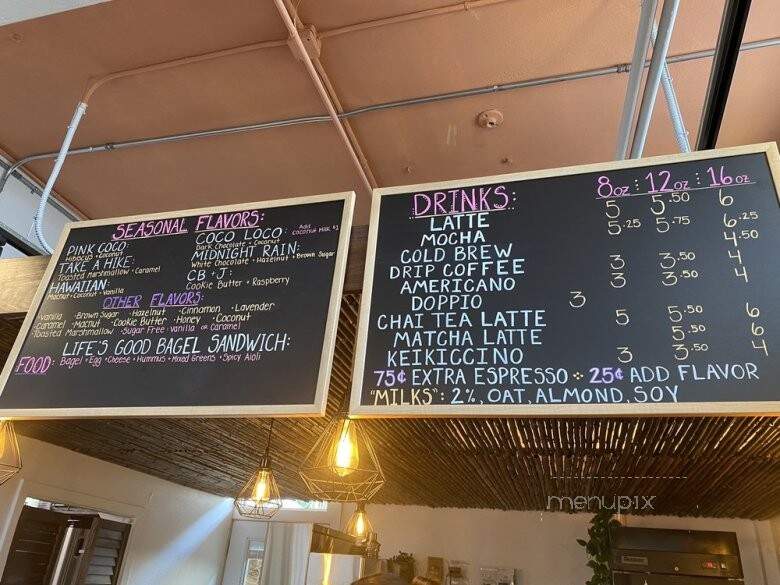 SEASONAL FLAVORS:
PINK COCO:
Hibiscus • Coconut
TAKE A HIKE:
Toasted Marshmallow • Caramel
HAWAIIAN:
Macnut • Coconut • Vanilla
COCO LOCO: Add coconut milk $1
Dark Chocolate • Coconut
MIDNIGHT RAIN:
White Chocolate • Hazelnut • Brown Sugar
CB + J:
Cookie Butter • Raspberry
OTHER FLAVORS:
•Vanilla •Brown Sugar •Hazelnut •Cinnamon •Lavender
•Caramel •Macnut •Cookie Butter •Honey •Coconut
•Toasted Marshmallow •Sugar Free: vanilla or caramel
LIFE'S GOOD BAGEL SANDWICH:
FOOD: Bagel • Egg • Cheese • Hummus • Mixed Greens • Spicy Aioli
DRINKS: 8oz : 12oz : 16oz
LATTE 5 5.50 6
MOCHA 5.25 5.75 6.25
COLD BREW 4.50
DRIP COFFEE 3 3.50 4
AMERICANO 3 3.50 4
DOPPIO 3
CHAI TEA LATTE 5 5.50 6
MATCHA LATTE 5.50 6
KEIKICCINO 3 3.50 4
75¢ EXTRA ESPRESSO 25¢ ADD FLAVOR
"MILKS": 2%, OAT, ALMOND, SOY
menupix